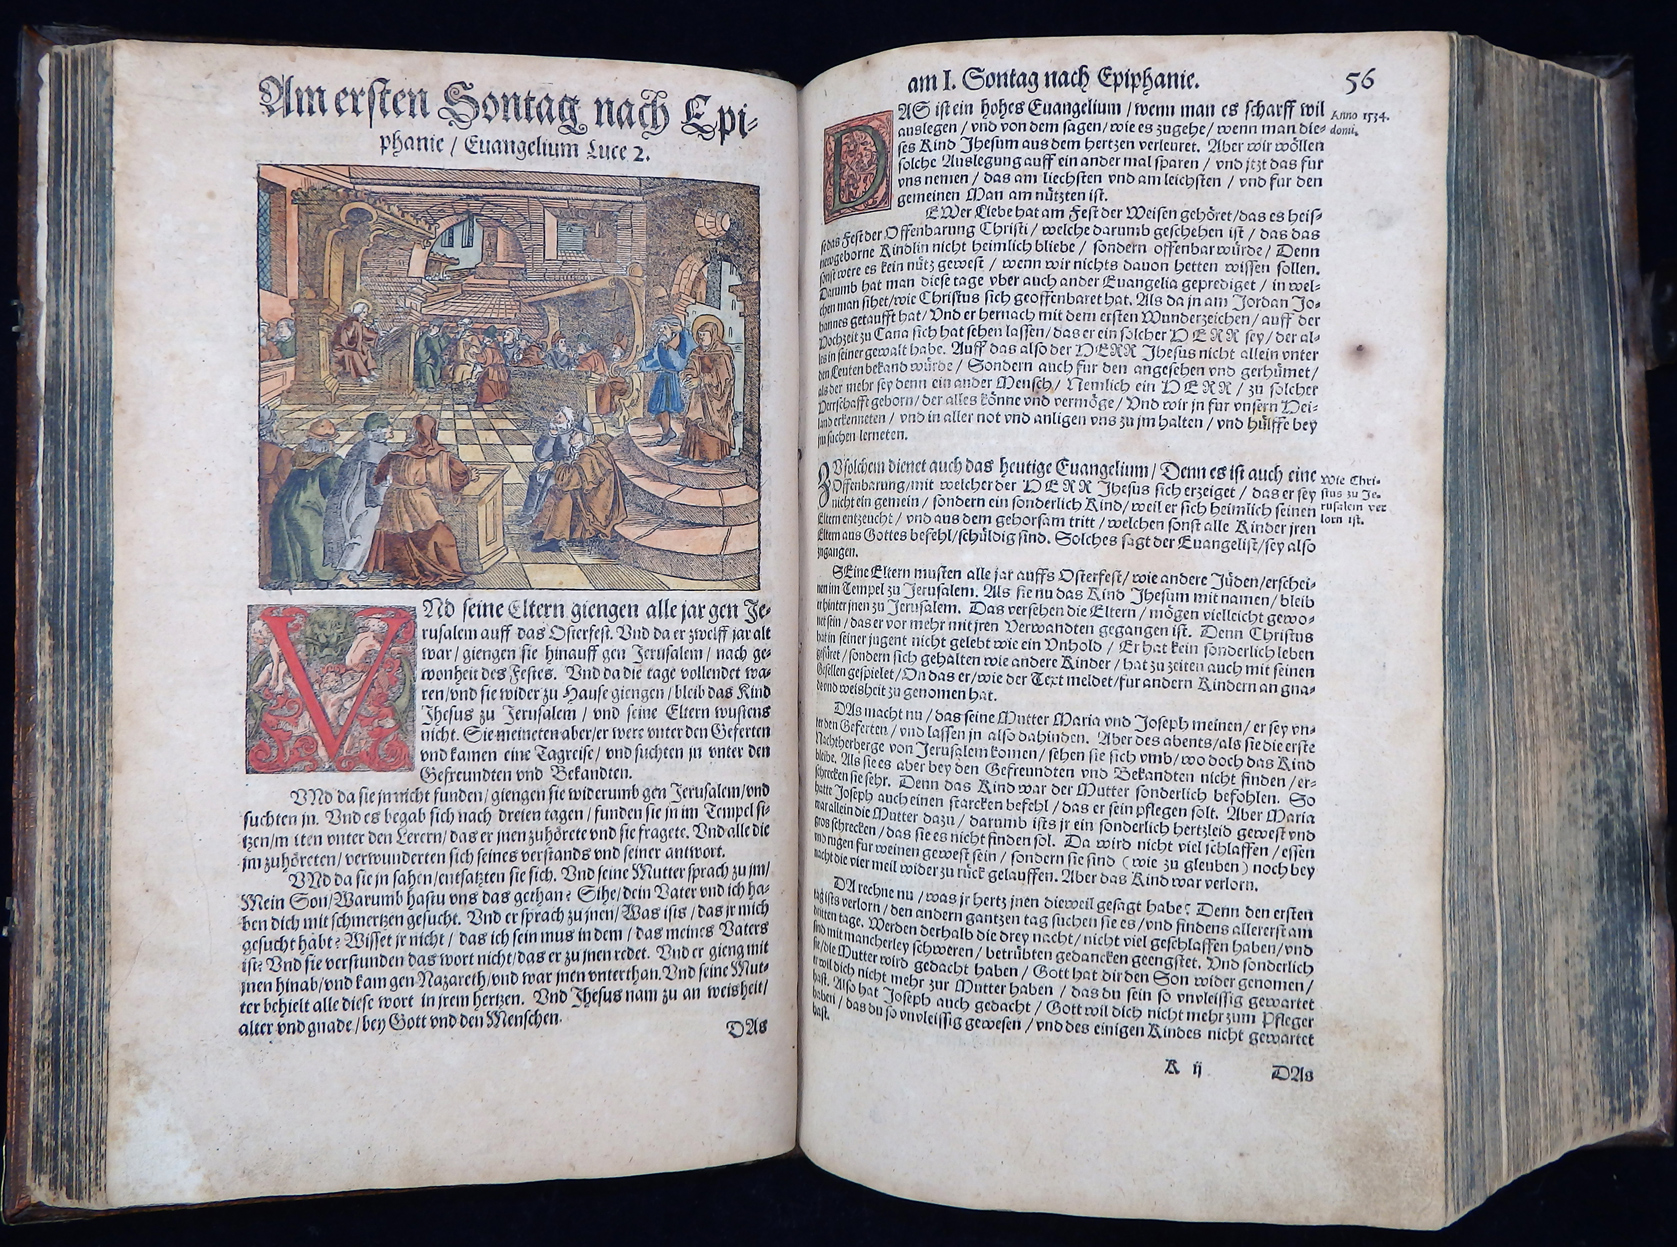 Am ersten Sontag nach Epi-
phanie / Euangelium Luce 2.
VNd seine Eltern giengen alle jar gen Je-
rusalem auff das Osterfest. Vnd da er zwelff jar alt
war / giengen sie hinauff gen Jerusalem / nach ge-
wonheit des Festes. Vnd da die tage vollendet wa-
ren / vnd sie wider zu Hause giengen / bleib das Kind
Jhesus zu Jerusalem / vnd seine Eltern wustens
nicht. Sie meineten aber / er were vnter den Geferten
vnd kamen eine Tagreise / vnd suchten jn vnter den
Gefreundten vnd Bekandten.
VNd da sie jn nicht funden / giengen sie widerumb gen Jerusalem / vnd
suchten jn. Vnd es begab sich nach dreien tagen / funden sie jn im Tempel si-
tzen / mitten vnter den Lerern / das er jnen zuhörete vnd sie fragete. Vnd alle die
jm zuhöreten / verwunderten sich seines verstands vnd seiner antwort.
VNd da sie jn sahen / entsatzten sie sich. Vnd seine Mutter sprach zu jm /
Mein Son / Warumb hastu vns das gethan? Sihe / dein Vater vnd ich ha-
ben dich mit schmertzen gesucht. Vnd er sprach zu jnen / Was ists / das jr mich
gesucht habt? Wisset jr nicht / das ich sein mus in dem / das meines Vaters
ist? Vnd sie verstunden das wort nicht / das er zu jnen redet. Vnd er gieng mit
jnen hinab / vnd kam gen Nazareth / vnd war jnen vnterthan. Vnd seine Mut-
ter behielt alle diese wort in jrem hertzen. Vnd Jhesus nam zu an weisheit /
alter vnd gnade / bey Gott vnd den Menschen.
DAs
am I. Sontag nach Epiphanie. 56
DAS ist ein hohes Euangelium / wenn man es scharff wil
auslegen / vnd von dem sagen / wie es zugehe / wenn man die-
ses Kind Jhesum aus dem hertzen verleuret. Aber wir wöllen
solche Auslegung auff ein ander mal sparen / vnd jtzt das fur
vns nemen / das am liechsten vnd am leichsten / vnd fur den
gemeinen Man am nützten ist.
Anno 1534.
domi.
EWer Liebe hat am Fest der Weisen gehöret / das es heis-
se das Fest der Offenbarung Christi / welche darumb geschehen ist / das das
newgeborne Kindlin nicht heimlich bliebe / sondern offenbar würde / Denn
sonst were es kein nütz gewest / wenn wir nichts dauon hetten wissen sollen.
Darumb hat man diese tage vber auch ander Euangelia geprediget / in wel-
chen man sihet / wie Christus sich geoffenbaret hat. Als da jn am Jordan Jo-
hannes getaufft hat / Vnd er hernach mit dem ersten Wunderzeichen / auff der
Hochzeit zu Cana sich hat sehen lassen / das er ein solcher HERR sey / der al-
les in seiner gewalt habe. Auff das also der HERR Jhesus nicht allein vnter
den Leuten bekand würde / Sondern auch fur den angesehen vnd gerhümet /
als der mehr sey denn ein ander Mensch / Nemlich ein HERR / zu solcher
Herrschafft geborn / der alles könne vnd vermöge / Vnd wir jn fur vnsern Hei-
land erkenneten / vnd in aller not vnd anligen vns zu jm halten / vnd hülffe bey
jm suchen lerneten.
ZV solchem dienet auch das heutige Euangelium / Denn es ist auch eine
Offenbarung / mit welcher der HERR Jhesus sich erzeiget / das er sey
nicht ein gemein / sondern ein sonderlich Kind / weil er sich heimlich seinen
Eltern entzeucht / vnd aus dem gehorsam tritt / welchen sonst alle Kinder jren
Eltern aus Gottes befehl / schüldig sind. Solches sagt der Euangelist / sey also
zugangen.
Wie Chri-
stus zu Je-
rusalem ver
lorn ist.
SEine Eltern musten alle jar auffs Osterfest / wie andere Jüden / erschei-
nen im Tempel zu Jerusalem. Als sie nu das Kind Jhesum mit namen / bleib
er hinter jnen zu Jerusalem. Das versehen die Eltern / mögen vielleicht gewo-
net sein / das er vor mehr mit jren Verwandten gegangen ist. Denn Christus
hat in seiner jugent nicht gelebt wie ein Vnhold / Er hat kein sonderlich leben
gefüret / sondern sich gehalten wie andere Kinder / hat zu zeiten auch mit seinen
Gesellen gespielet / On das er / wie der Text meldet / fur andern Kindern an gna-
de vnd weisheit zu genomen hat.
DAs macht nu / das seine Mutter Maria vnd Joseph meinen / er sey vn-
ter den Geferten / vnd lassen jn also dahinden. Aber des abents / als sie die erste
Nachtherberge von Jerusalem komen / sehen sie sich vmb / wo doch das Kind
bleibe. Als sie es aber bey den Gefreundten vnd Bekandten nicht finden / er-
schrecken sie sehr. Denn das Kind war der Mutter sonderlich befohlen. So
hatte Joseph auch einen starcken befehl / das er sein pflegen solt. Aber Maria
war allein die Mutter dazu / darumb ists jr ein sonderlich hertzleid gewest vnd
gros schrecken / das sie es nicht finden sol. Da wird nicht viel schlaffen / essen
vnd rugen fur weinen gewest sein / sondern sie sind (wie zu gleuben) noch bey
nacht die vier meil wider zu rück gelauffen. Aber das Kind war verlorn.
DA rechne nu / was jr hertz jnen dieweil gesagt habe? Denn den ersten
tag ists verlorn / den andern gantzen tag suchen sie es / vnd findens allererst am
dritten tage. Werden derhalb die drey nacht / nicht viel geschlaffen haben / vnd
sind mit mancherley schweren / betrübten gedancken geengstet. Vnd sonderlich
sie / die Mutter wird gedacht haben / Gott hat dir den Son wider genomen /
er wil dich nicht mehr zur Mutter haben / das du sein so vnvleissig gewartet
hast. Also hat Joseph auch gedacht / Gott wil dich nicht mehr zum Pfleger
haben / das du so vnvleissig gewesen / vnd des einigen Kindes nicht gewartet
hast.
K ij DAs